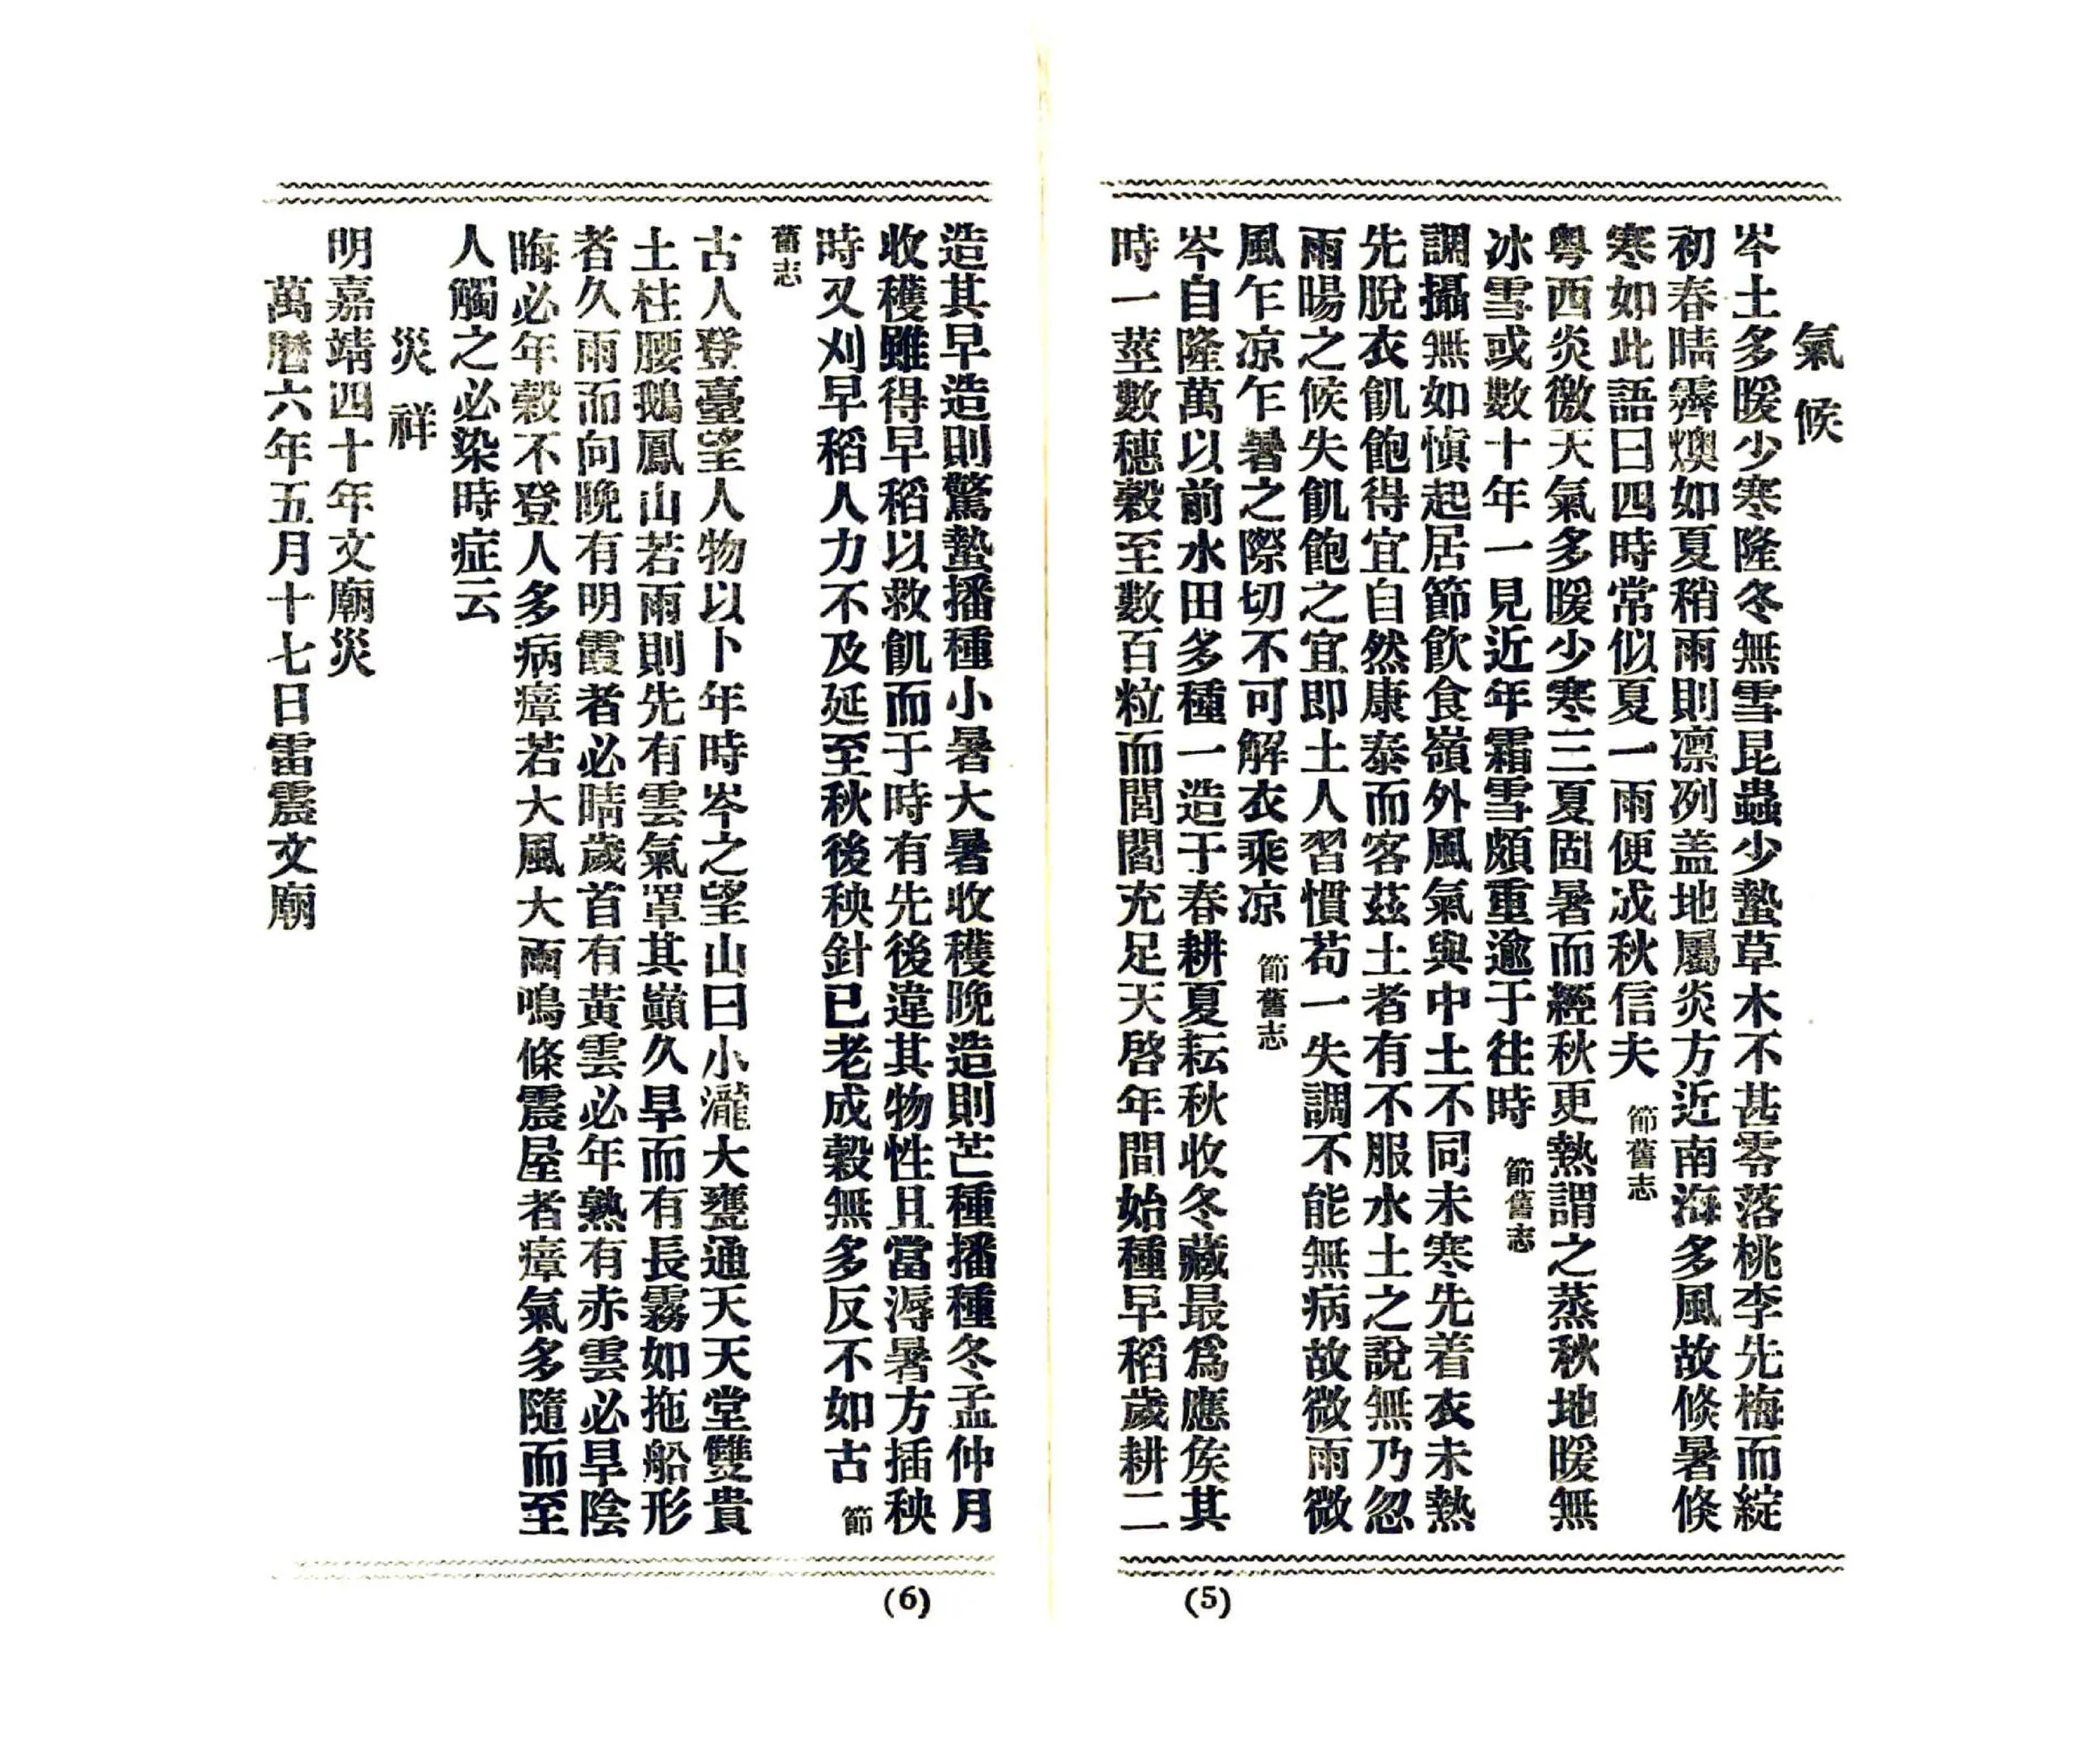 氣候
岑土多暖少寒隆冬無雪昆蟲少蟄草木不甚零落桃李先梅而綻
初春晴霽燠如夏稍雨則凛冽盖地屬炎方近南海多風故倐暑倐
寒如此語曰四時常似夏一雨便成秋信夫 節舊志
粤西炎徼天氣多暖少寒三夏固暑而經秋更熱謂之蒸秋地暖無
冰雪或數十年一見近年霜雪頗重逾于往時 節舊志
調攝無如慎起居節飲食嶺外風氣與中土不同未寒先着衣未熱
先脫衣飢飽得宜自然康泰而客茲土者有不服水土之說無乃忽
雨暘之候失飢飽之宜即土人習慣苟一失調不能無病故微雨微
風乍凉乍暑之際切不可解衣乘凉 節舊志
岑自隆萬以前水田多種一造于春耕夏耘秋收冬藏最爲應矦其
時一莖數穗穀至數百粒而閭閻充足天啓年間始種早稻歲耕二
(5)
造其早造則驚蟄播種小暑大暑收穫晚造則芒種播種冬孟仲月
收穫雖得早稻以救飢而于時有先後違其物性且當溽暑方插秧
時又刈早稻人力不及延至秋後秧針已老成穀無多反不如古 節
舊志
古人登臺望人物以卜年時岑之望山曰小瀧大甕通天天堂雙貴
土柱腰鵝鳳山若雨則先有雲氣罩其巔久早而有長霧如拖船形
者久雨而向晚有明霞者必晴歲首有黃雲必年熟有赤雲必旱陰
晦必年穀不登人多病瘴若大風大雨鳴條震屋者瘴氣多隨而至
人觸之必染時症云
災祥
明嘉靖四十年文廟災
萬曆六年五月十七日雷震文廟
(6)